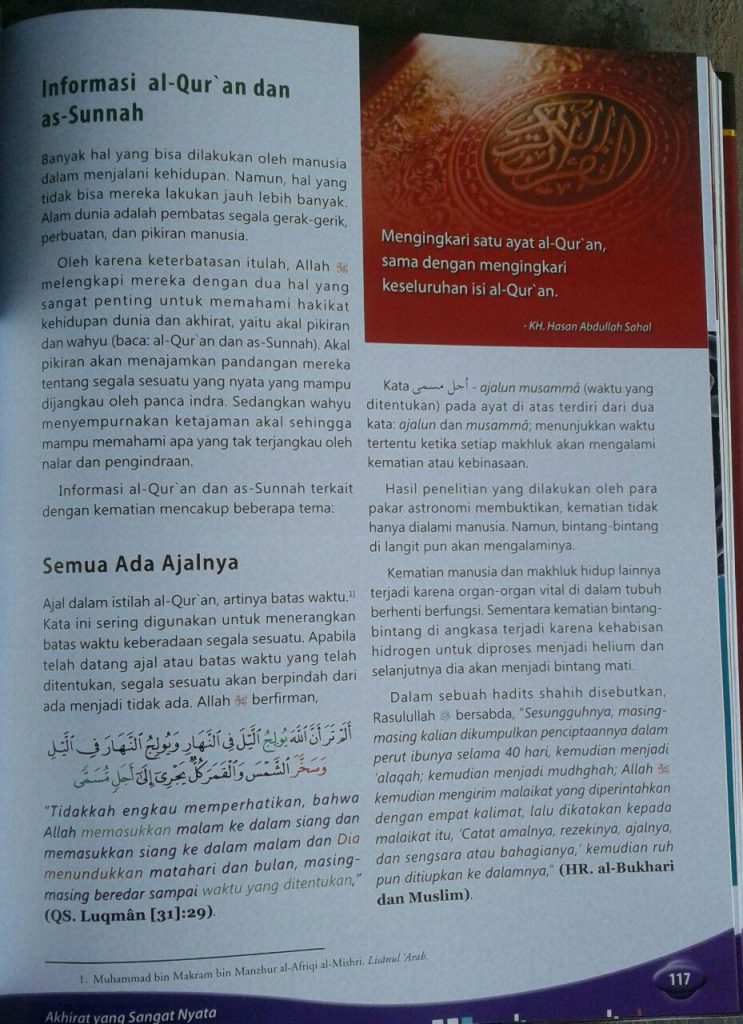 Informasi al-Qur`an dan
as-Sunnah
Banyak hal yang bisa dilakukan oleh manusia
dalam menjalani kehidupan. Namun, hal yang
tidak bisa mereka lakukan jauh lebih banyak.
Alam dunia adalah pembatas segala gerak-gerik,
perbuatan, dan pikiran manusia.
Oleh karena keterbatasan itulah, Allah ﷻ
melengkapi mereka dengan dua hal yang
sangat penting untuk memahami hakikat
kehidupan dunia dan akhirat, yaitu akal pikiran
dan wahyu (baca: al-Qur`an dan as-Sunnah). Akal
pikiran akan menajamkan pandangan mereka
tentang segala sesuatu yang nyata yang mampu
dijangkau oleh panca indra. Sedangkan wahyu
menyempurnakan ketajaman akal sehingga
mampu memahami apa yang tak terjangkau oleh
nalar dan pengindraan.
Informasi al-Qur`an dan as-Sunnah terkait
dengan kematian mencakup beberapa tema:
Semua Ada Ajalnya
Ajal dalam istilah al-Qur`an, artinya batas waktu.1)
Kata ini sering digunakan untuk menerangkan
batas waktu keberadaan segala sesuatu. Apabila
telah datang ajal atau batas waktu yang telah
ditentukan, segala sesuatu akan berpindah dari
ada menjadi tidak ada. Allah ﷻ berfirman,
أَلَمْ تَرَ أَنَّ ٱللَّهَ يُولِجُ ٱلَّيْلَ فِى ٱلنَّهَارِ وَيُولِجُ ٱلنَّهَارَ فِى ٱلَّيْلِ
وَسَخَّرَ ٱلشَّمْسَ وَٱلْقَمَرَ كُلٌّ يَجْرِىٓ إِلَىٰٓ أَجَلٍ مُّسَمًّى
"Tidakkah engkau memperhatikan, bahwa
Allah memasukkan malam ke dalam siang dan
memasukkan siang ke dalam malam dan Dia
menundukkan matahari dan bulan, masing-
masing beredar sampai waktu yang ditentukan,"
(QS. Luqmân [31]:29).
القرآن الكريم
Mengingkari satu ayat al-Qur`an,
sama dengan mengingkari
keseluruhan isi al-Qur`an.
- KH. Hasan Abdullah Sahal
Kata أجل مسمى - ajalun musammâ (waktu yang
ditentukan) pada ayat di atas terdiri dari dua
kata: ajalun dan musammâ; menunjukkan waktu
tertentu ketika setiap makhluk akan mengalami
kematian atau kebinasaan.
Hasil penelitian yang dilakukan oleh para
pakar astronomi membuktikan, kematian tidak
hanya dialami manusia. Namun, bintang-bintang
di langit pun akan mengalaminya.
Kematian manusia dan makhluk hidup lainnya
terjadi karena organ-organ vital di dalam tubuh
berhenti berfungsi. Sementara kematian bintang-
bintang di angkasa terjadi karena kehabisan
hidrogen untuk diproses menjadi helium dan
selanjutnya dia akan menjadi bintang mati.
Dalam sebuah hadits shahih disebutkan,
Rasulullah ﷺ bersabda, "Sesungguhnya, masing-
masing kalian dikumpulkan penciptaannya dalam
perut ibunya selama 40 hari, kemudian menjadi
'alaqah; kemudian menjadi mudhghah; Allah ﷻ
kemudian mengirim malaikat yang diperintahkan
dengan empat kalimat, lalu dikatakan kepada
malaikat itu, 'Catat amalnya, rezekinya, ajalnya,
dan sengsara atau bahagianya,' kemudian ruh
pun ditiupkan ke dalamnya," (HR. al-Bukhari
dan Muslim).
1. Muhammad bin Makram bin Manzhur al-Afriqi al-Mishri. Lisânul 'Arab.
117
Akhirat yang Sangat Nyata